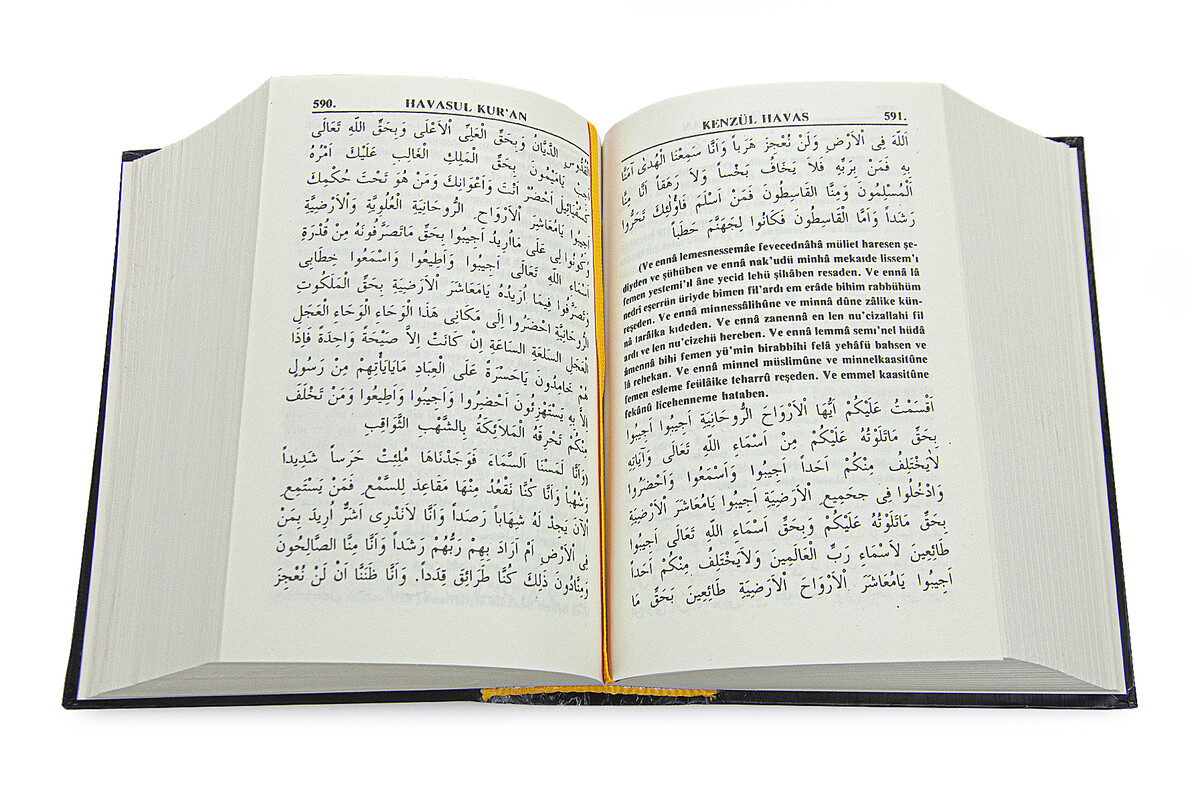 590.
HAVASUL KUR'AN
الْقُدُّوسِ الدَّيَّانِ وَبِحَقِّ الْعَلِيِّ الْاَعْلٰى وَبِحَقِّ اللّٰهِ تَعَالٰى
اَجِبْ يَامَيْمُونُ بِحَقِّ الْمَلِكِ الْغَالِبِ عَلَيْكَ اَمْرُهُ
اَحْضُرْ اَنْتَ وَاَعْوَانِكَ وَمَنْ هُوَ تَحْتَ حُكْمِكَ
اَجِيبُوا يَامَعَاشِرَ الْاَرْوَاحِ الرُّوحَانِيَّةِ الْعُلْوِيَّةِ وَالْاَرْضِيَّةِ
وَكُونُوا لِى عَلٰى مَااُرِيدُ اَجِيبُوا بِحَقِّ مَاتَصَرَّفُونَهُ مِنْ قُدْرَةِ
اَسْمَاءِ اللّٰهِ تَعَالٰى اَجِيبُوا وَاَطِيعُوا وَاسْمَعُوا خِطَابِى
وَتَصَرَّفُوا فِيمَا اُرِيدُهُ يَامَعَاشِرَ الْاَرْضِيَّةِ بِحَقِّ الْمَلَكُوتِ
الرُّوحَانِيَّةِ احْضُرُوا اِلٰى مَكَانِى هٰذَا الْوَحَاءِ الْوَحَاءِ الْعَجَلِ
الْعَجَلِ السَّاعَةِ السَّاعَةِ اِنْ كَانَتْ اِلَّا صَيْحَةً وَاحِدَةً فَاِذَا
هُمْ خَامِدُونَ يَاحَسْرَةً عَلَى الْعِبَادِ مَايَاْتِيهِمْ مِنْ رَسُولٍ
اِلَّا بِهِ يَسْتَهْزِئُونَ اَحْضِرُوا وَاَجِيبُوا وَاَطِيعُوا وَمَنْ تَخَلَّفَ
مِنْكُمْ تَحْرِقُهُ الْمَلَائِكَةُ بِالشُّهُبِ الثَّوَاقِبِ
(وَاَنَّا لَمَسْنَا السَّمَاءَ فَوَجَدْنَاهَا مُلِئَتْ حَرَساً شَدِيداً
وَشُهُباً وَاَنَّا كُنَّا نَقْعُدُ مِنْهَا مَقَاعِدَ لِلسَّمْعِ فَمَنْ يَسْتَمِعِ
الْاٰنَ يَجِدْ لَهُ شِهَاباً رَصَداً وَاَنَّا لَانَدْرِى اَشَرٌّ اُرِيدَ بِمَنْ
فِى الْاَرْضِ اَمْ اَرَادَ بِهِمْ رَبُّهُمْ رَشَداً وَاَنَّا مِنَّا الصَّالِحُونَ
وَمِنَّادُونَ ذٰلِكَ كُنَّا طَرَائِقَ قِدَداً. وَاَنَّا ظَنَنَّا اَنْ لَنْ نُعْجِزَ
KENZÜL HAVAS
591.
اللّٰهَ فِى الْاَرْضِ وَلَنْ نُعْجِزَ هَرَباً وَاَنَّا سَمِعْنَا الْهُدٰى اٰمَنَّا
بِهِ فَمَنْ بِرَبِّهِ فَلَا يَخَافُ بَخْساً وَلَا رَهَقاً اَنَّا مِنَّا
الْمُسْلِمُونَ وَمِنَّا الْقَاسِطُونَ فَمَنْ اَسْلَمَ فَاُولٰئِكَ تَحَرَّوْا
رَشَداً وَاَمَّا الْقَاسِطُونَ فَكَانُوا لِجَهَنَّمَ حَطَباً
(Ve ennâ lemesnessemâe fevecednâhâ müliet haresen şe-
diyden ve şühüben ve ennâ nak'udü minhâ mekaıde lissem'ı
femen yestemi'ıl âne yecid lehü şihâben resaden. Ve ennâ lâ
nedrî eşerrün üriyde bimen fil'ardı em erâde bihim rabbühüm
reşeden. Ve ennâ minnessâlihûne ve minnâ dûne zâlike kün-
nâ tarâika kıdeden. Ve ennâ zanennâ en len nu'cizallahi fil
ardı ve len nu'cizehü hereben. Ve ennâ lemmâ semı'nel hüdâ
âmennâ bihi femen yü'min birabbihi felâ yehâfü bahsen ve
lâ rehekan. Ve ennâ minnel müslimûne ve minnelkaasitûne
femen esleme feülâike teharrû reşeden. Ve emmel kaasitûne
fekânû licehenneme hataben.
اَقْسَمْتُ عَلَيْكُمْ اَيُّهَا الْاَرْوَاحَ الرُّوحَانِيَّةِ اَجِيبُوا اَجِيبُوا
بِحَقِّ مَاتَلَوْتُهُ عَلَيْكُمْ مِنْ اَسْمَاءِ اللّٰهِ تَعَالٰى وَاٰيَاتِهِ
لَايَخْتَلِفُ مِنْكُمْ اَحَداً اَجِيبُوا وَاسْمَعُوا وَاَحْضِرُوا
وَادْخُلُوا فِى جَمِيعِ الْاَرْضِيَّةِ اَجِيبُوا يَامَعَاشِرَ الْاَرْضِيَّةِ
بِحَقِّ مَاتَلَوْتُهُ عَلَيْكُمْ وَبِحَقِّ اَسْمَاءِ اللّٰهِ تَعَالٰى اَجِيبُوا
طَائِعِينَ لِاَسْمَاءِ رَبِّ الْعَالَمِينَ وَلَايَخْتَلِفُ مِنْكُمْ اَحَداً
اَجِيبُوا يَامَعَاشِرَ الْاَرْوَاحِ الْاَرْضِيَّةِ طَائِعِينَ بِحَقِّ مَا